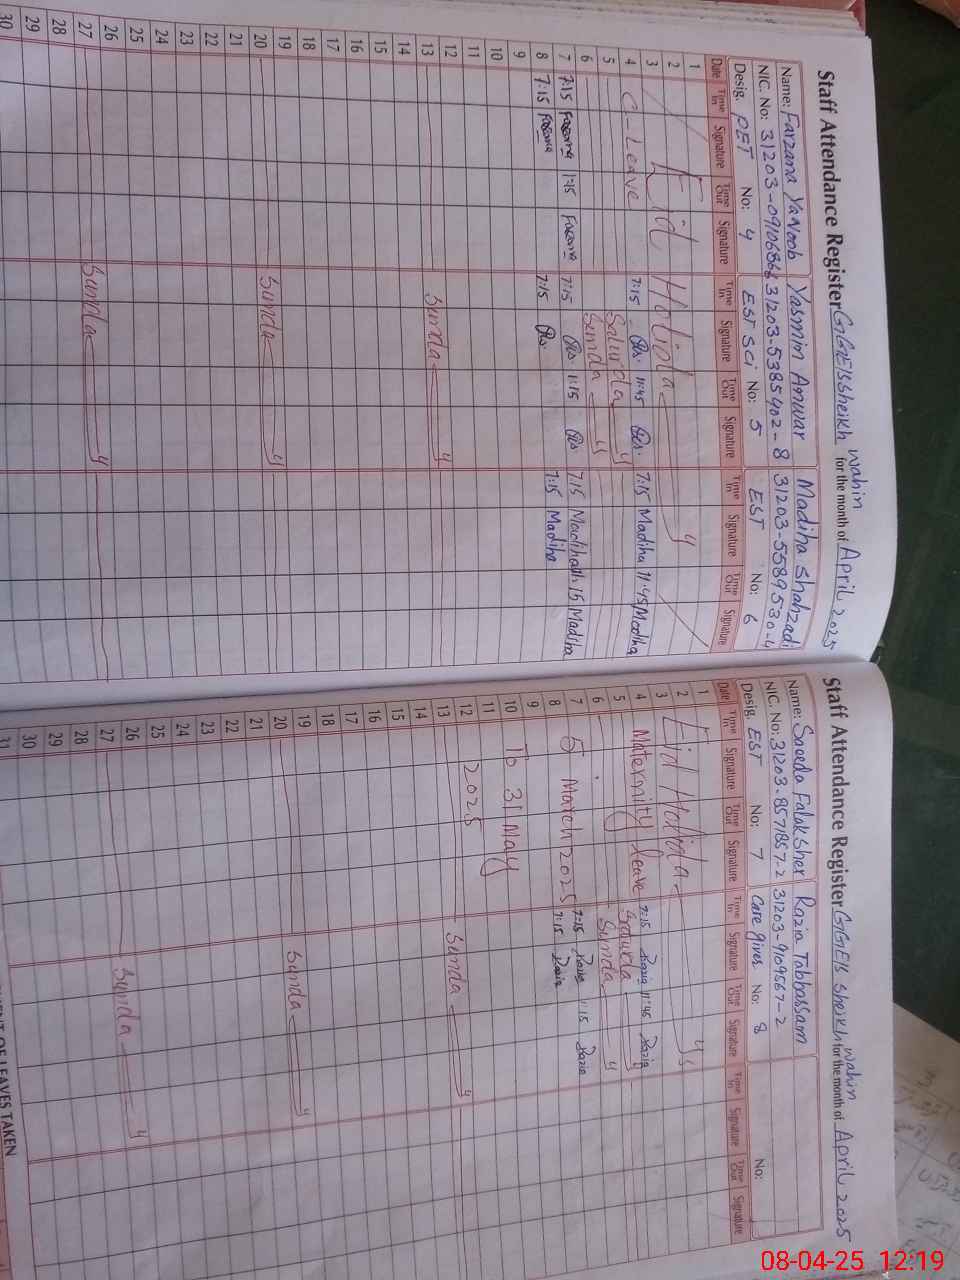 Staff Attendance Register GGES Sheikh Wahin for the month of April 2025
Name: Farzana Yaqoob Yasmin Anwar Madiha Shahzadi
NIC. No: 31203-0910686 31203-5385402-8 31203-5589530-4
Desig. PET No: 4 EST Sci No: 5 EST No: 6
Date Time In Signature Time Out Signature Time In Signature Time Out Signature Time In Signature Time Out Signature
1
2 Eid Holiday
3
4 C-Leave 7:15 11:45 7:15 Madiha 11:45 Madiha
5 Saturday
6 Sunday
7 7:15 1:15 7:15 1:15 7:15 Madiha 1:15 Madiha
8 7:15 7:15 7:15 Madiha
9
10
11
12
13 Sunday
14
15
16
17
18
19
20 Sunday
21
22
23
24
25
26
27 Sunday
28
29
30
Staff Attendance Register GGES Sheikh Wahin for the month of April 2025
Name: Saeeda Falak Sher Razia Tabbassam
NIC. No: 31203-8571857-2 31203-9109567-2
Desig. EST No: 7 Care giver No: 8 No:
Date Time In Signature Time Out Signature Time In Signature Time Out Signature Time In Signature Time Out Signature
1
2 Eid Holiday
3
4 Maternity leave 7:15 Razia 11:45 Razia
5 Saturday
6 Sunday
7 5 March 2025 7:15 Razia 1:15 Razia
8 7:15 Razia
9
10 To 31 May
11
12 2025
13 Sunday
14
15
16
17
18
19
20 Sunday
21
22
23
24
25
26
27 Sunday
28
29
30
31
OF LEAVES TAKEN
08-04-25 12:19